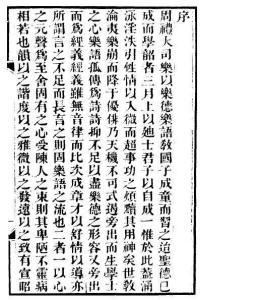 序
周禮大司樂以樂德樂語教國子成童而習之迨聖德已
成而學韶者三月上以迪士君子以自成一惟於此蓋涵
泳淫泆引性情以入微而超事功之煩黷其用神矣世敎
淪夷樂崩而降于優俳乃天機不可式遏旁出而生學士
之心樂語孤傳爲詩詩抑不足以盡樂德之形容又旁出
而爲經義經義雖無音律而比次成章才以舒情以導亦
所謂言之不足而長言之則固樂語之流也二者一以心
之元聲爲至舍固有之心受陳人之束則其卑陋不靈病
相若也韻以之諧度以之雅微以之發遠以之致有宣昭